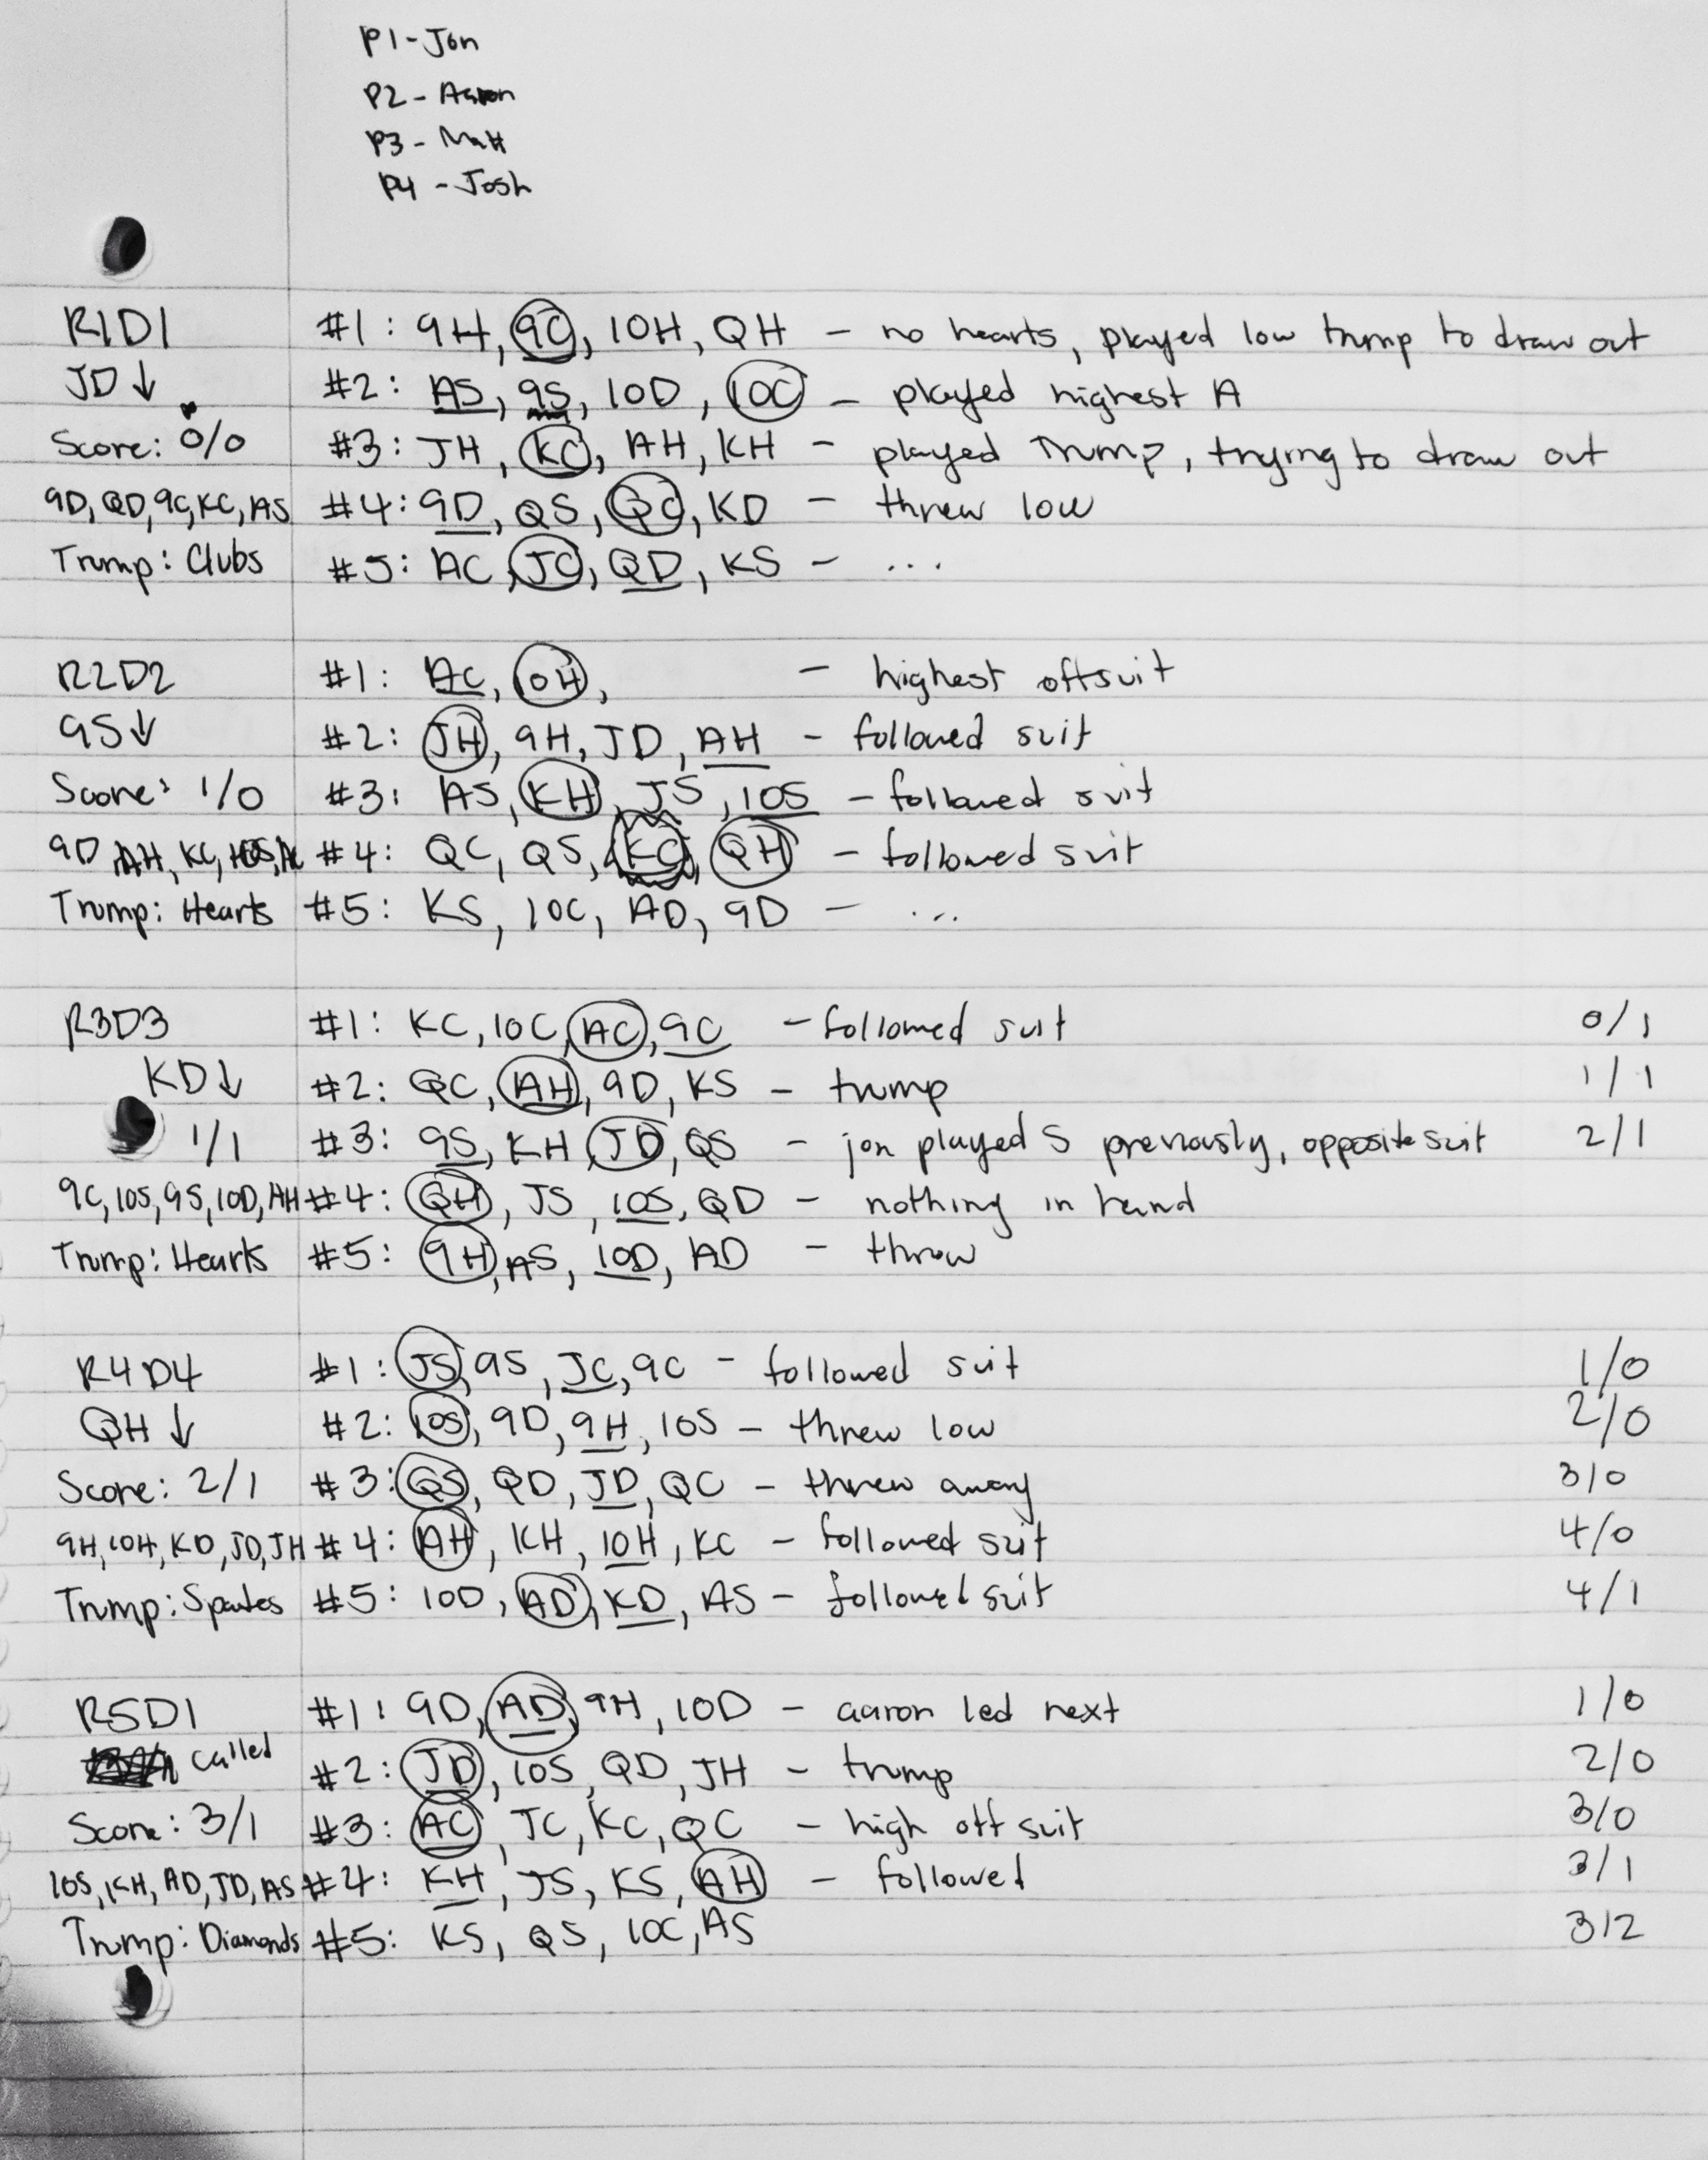 P1-Jon
P2-Aaron
P3-Matt
P4-Josh
R1D1 #1: 9H, 9C, 10H, QH - no hearts, played low trump to draw out
JD↓ #2: AS, 9S, 10D, 10C - played highest A
Score: 0/0 #3: JH, KC, AH, KH - played Trump, trying to draw out
9D, QD, 9C, KC, AS #4: 9D, QS, QC, KD - threw low
Trump: Clubs #5: AC, JC, QD, KS - ...
R2D2 #1: AC, 10H, - highest offsuit
9S↓ #2: JH, 9H, JD, AH - followed suit
Score: 1/0 #3: AS, KH, JS, 10S - followed suit
9D, AH, KC, 10S, AC #4: QC, QS, KC, QH - followed suit
Trump: Hearts #5: KS, 10C, AD, 9D - ...
R3D3 #1: KC, 10C, AC, 9C - followed suit 0/1
KD↓ #2: QC, AH, 9D, KS - trump 1/1
1/1 #3: 9S, KH, JD, QS - jon played S previously, opposite suit 2/1
9C, 10S, 9S, 10D, AH #4: QH, JS, 10S, QD - nothing in hand
Trump: Hearts #5: 9H, AS, 10D, AD - throw
R4D4 #1: JS, 9S, JC, 9C - followed suit 1/0
QH↓ #2: 10S, 9D, 9H, 10S - threw low 2/0
Score: 2/1 #3: QS, QD, JD, QC - threw away 3/0
9H, 10H, KD, JD, JH #4: AH, KH, 10H, KC - followed suit 4/0
Trump: Spades #5: 10D, AD, KD, AS - followed suit 4/1
R5D1 #1: 9D, AD, 9H, 10D - aaron led next 1/0
called #2: JD, 10S, QD, JH - trump 2/0
Score: 3/1 #3: AC, JC, KC, QC - high off suit 3/0
10S, KH, AD, JD, AS #4: KH, JS, KS, AH - followed 3/1
Trump: Diamonds #5: KS, QS, 10C, AS 3/2